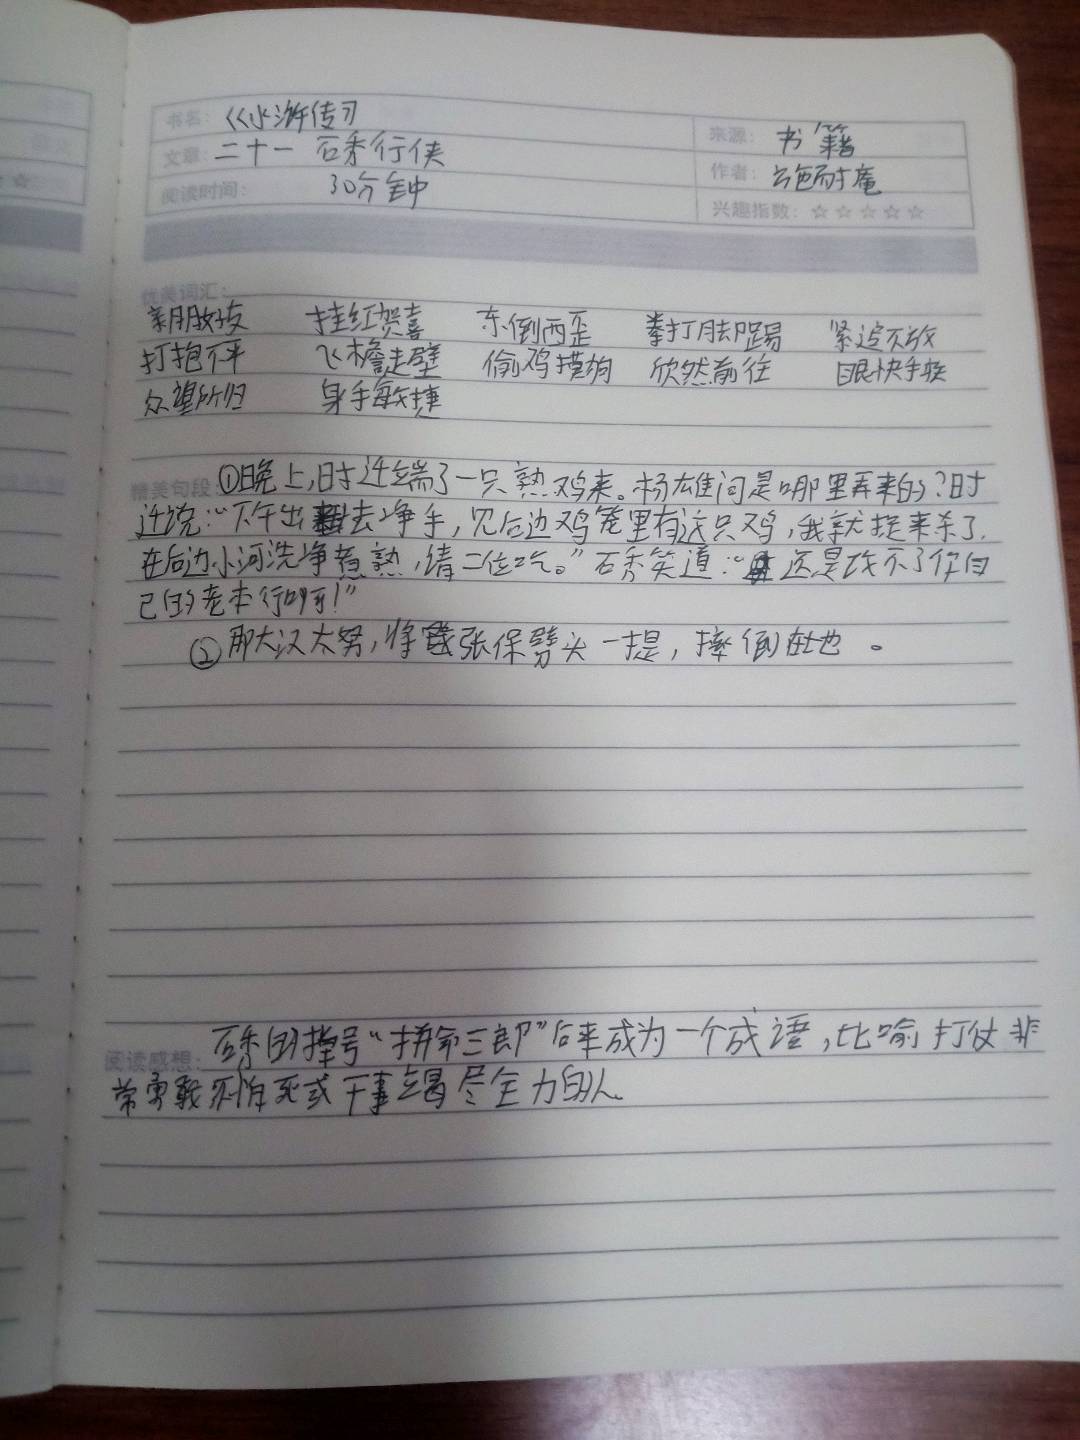 书名：《水浒传》
来源：书籍
文章：二十一 石秀行侠
作者：施耐庵
阅读时间：30分钟
兴趣指数：☆☆☆☆☆
优美词汇：
亲朋好友 挂红贺喜 东倒西歪 拳打脚踢 紧追不放
打抱不平 飞檐走壁 偷鸡摸狗 欣然前往 眼快手疾
众望所归 身手敏捷
精美句段：①晚上,时迁端了一只熟鸡来。杨雄问是哪里弄来的?时
迁说:“下午出去净手,见后边鸡笼里有这只鸡,我就捉来杀了,
在后边小河洗净煮熟,请二位吃。”石秀笑道:“还是改不了你自
己的老本行啊!”
②那大汉大努,将张保劈头一提,摔倒在地。
阅读感想：石秀的绰号“拼命三郎”后来成为一个成语,比喻打仗非
常勇敢不怕死或干事竭尽全力的人